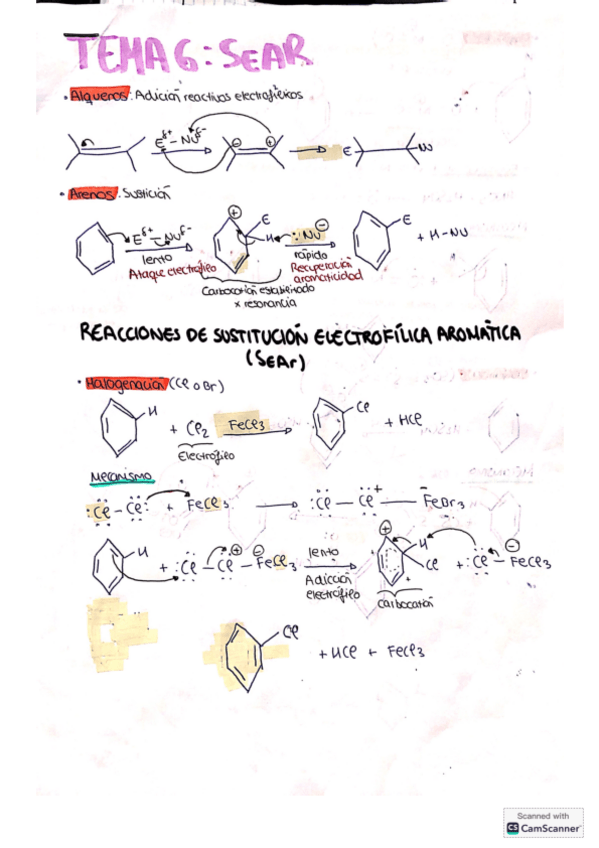 TEMA 6: SEAR
• Alquenos: Adición reactivos electrofílicos
Eδ+ – Nuδ-
⊖ ⊕
E
NU
• Arenos: Sustición
Eδ+ – Nuδ-
lento
Ataque electrófilo
⊕
E
H
:Nu⊖
rápido
Recuperación
aromaticidad
E
+ H-NU
Carbocatión estabilizado
x resonancia
REACCIONES DE SUSTITUCIÓN ELECTROFÍLICA AROMÁTICA
(SEAr)
• Halogenación (Cl o Br)
H
+ Cl2
FeCl3
Cl
+ HCl
Electrófilo
Mecanismo
:Cl – Cl: + FeCl3
:Cl – Cl+ – FeBr3
H
+ :Cl – Cl – FeCl3
⊕ ⊖
lento
Adición
electrófilo
⊕
H
Cl
Carbocatión
+ :Cl – FeCl3
⊖
Cl
+ HCl + FeCl3
Scanned with
CS CamScanner